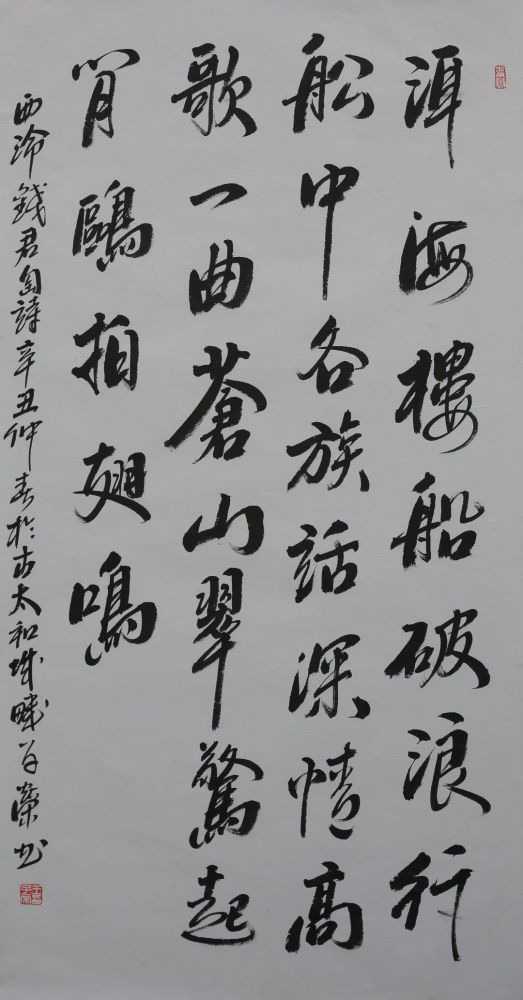 洱海樓船破浪行
船中各族話深情高
歌一曲蒼山翠驚起
閒鷗拍翅鳴
西泠錢君匋詩辛丑仲春於古太和城